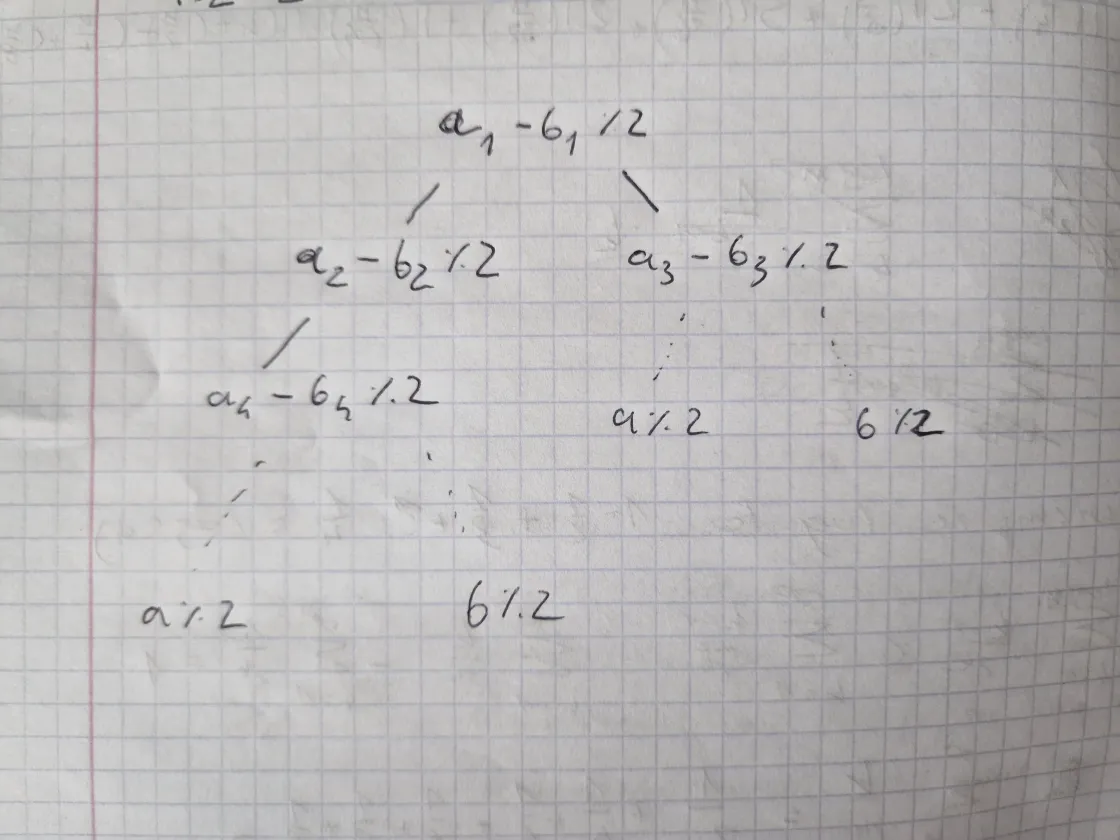 a₁ - b₁ % 2
a₂ - b₂ % 2 a₃ - b₃ % 2
a₄ - b₄ % 2
a % 2 b % 2
a % 2 b % 2